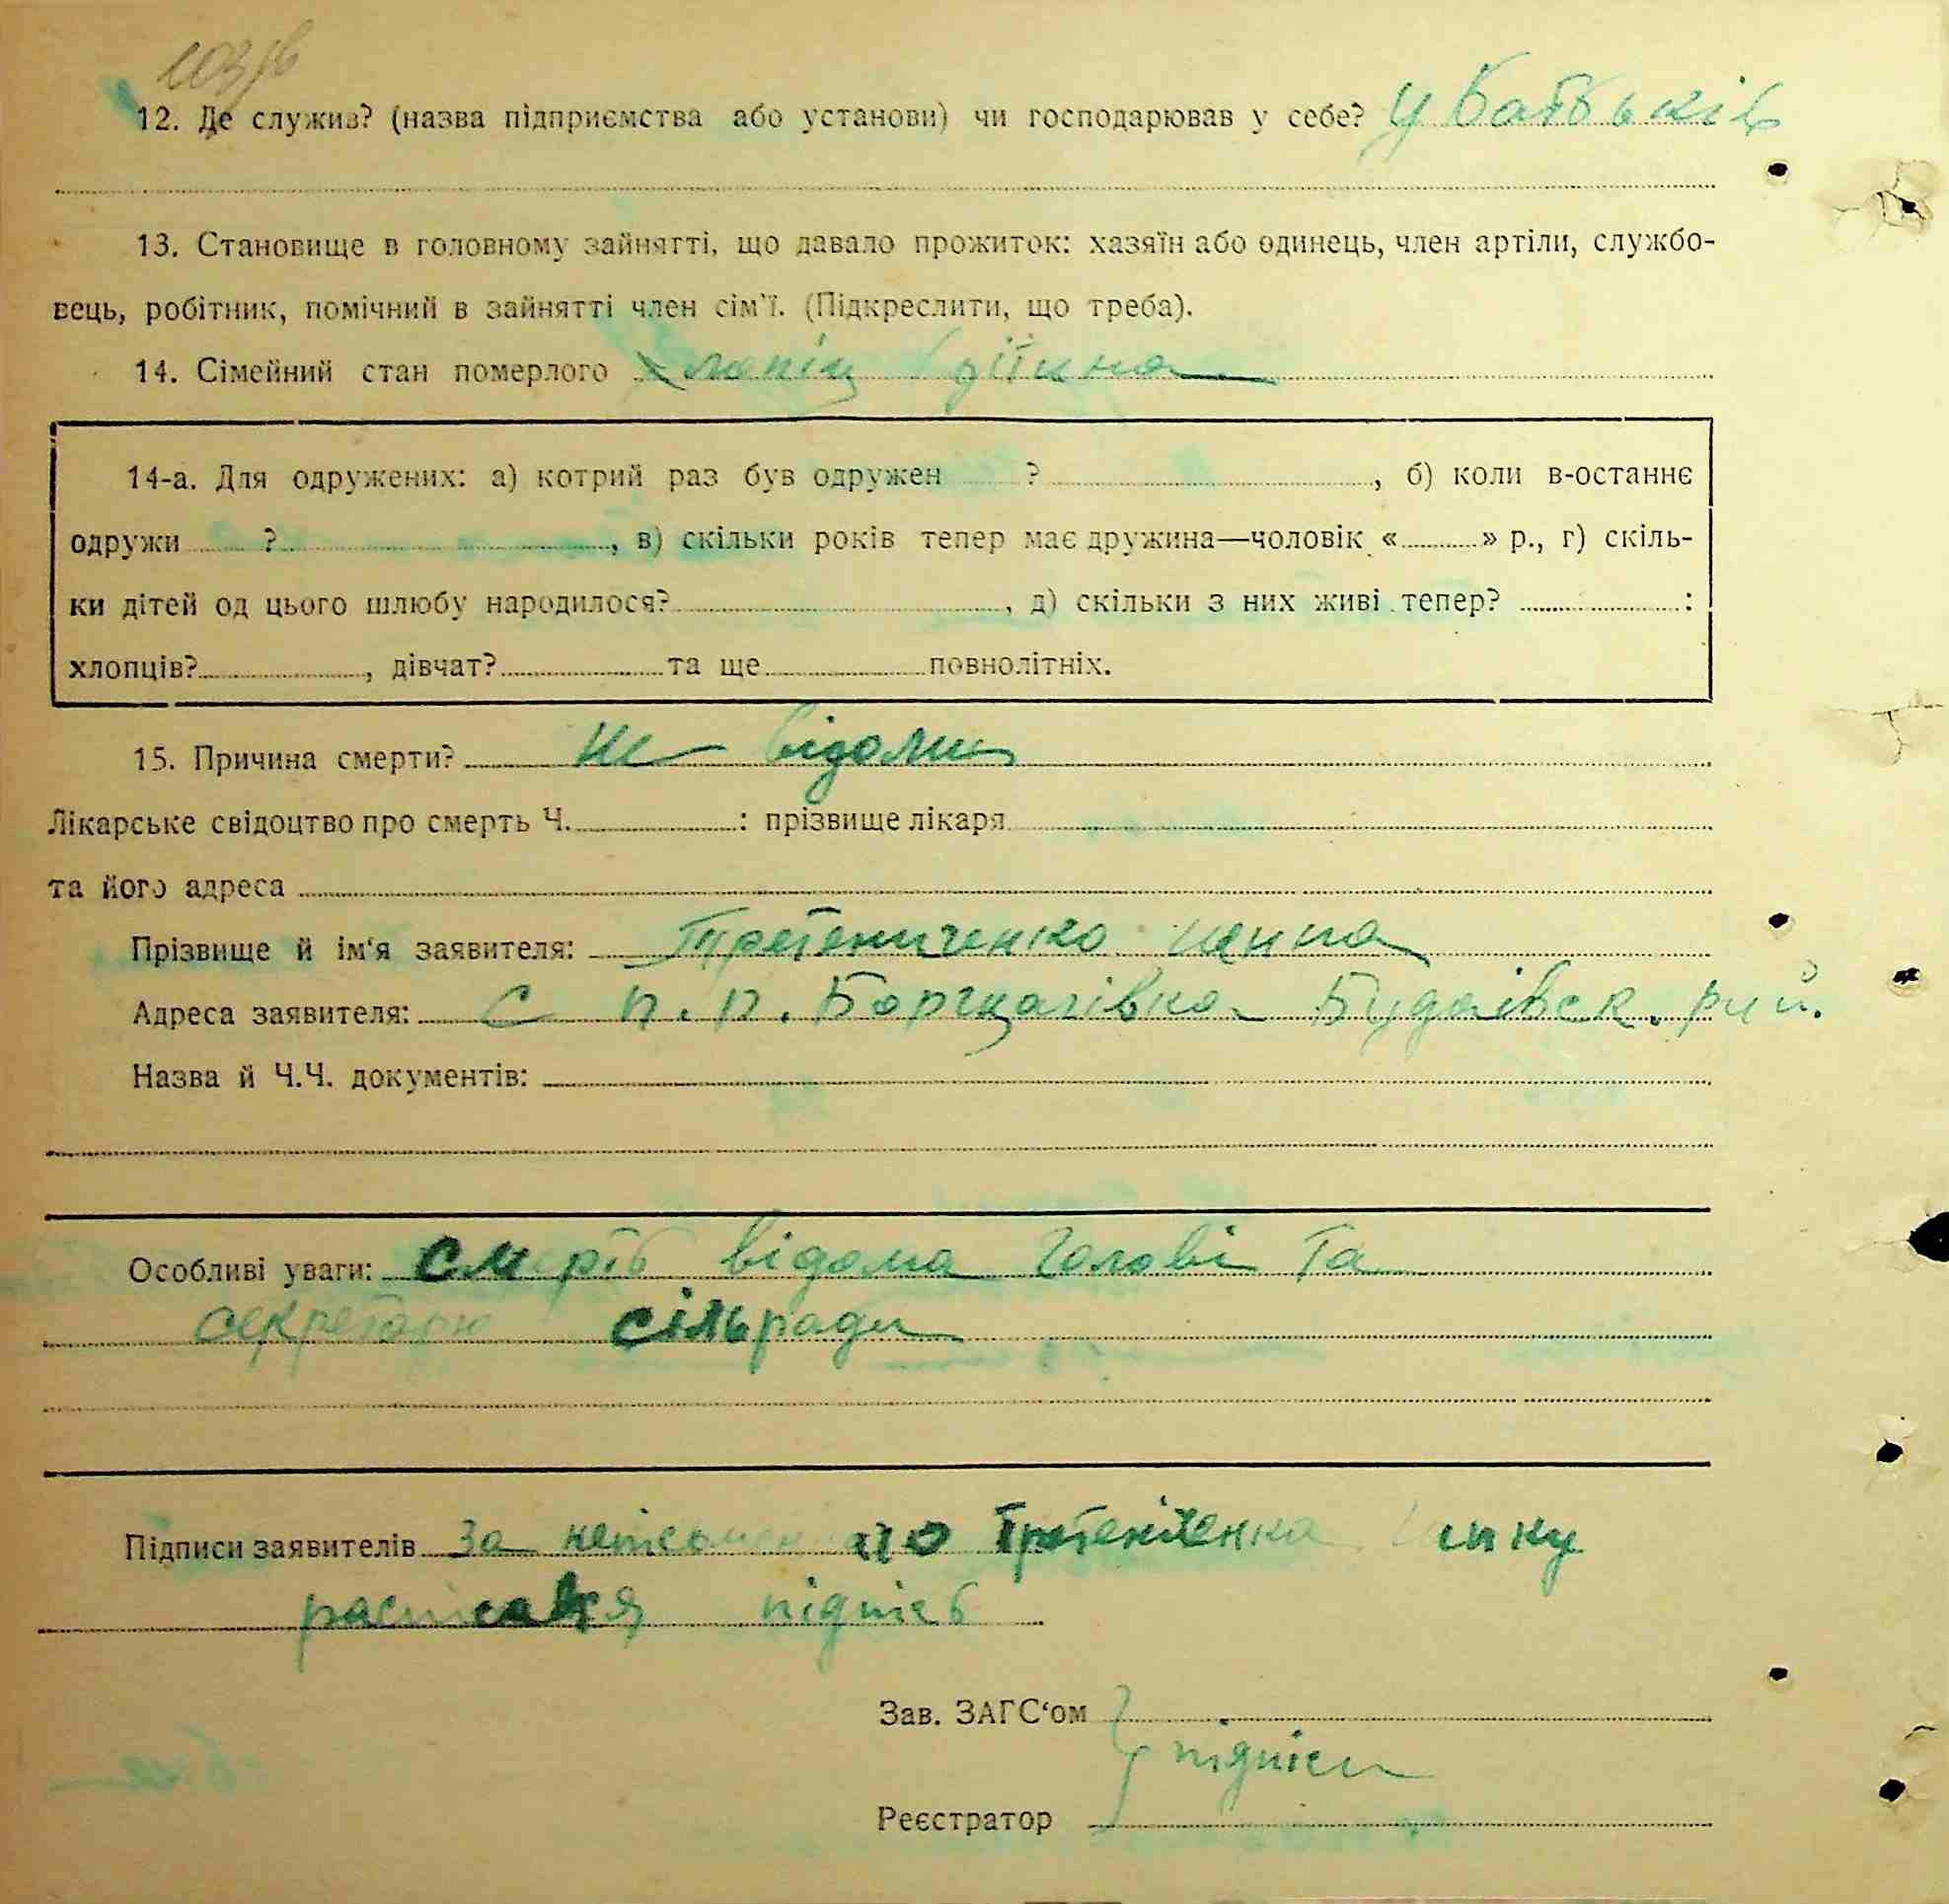 12. Де служив? (назва підприємства або установи) чи господарював у себе? у батьків
13. Становище в головному зайнятті, що давало прожиток: хазяїн або одинець, член артіли, службо-
вець, робітник, помічний в зайнятті член сім'ї. (Підкреслити, що треба).
14. Сімейний стан померлого хлопіц
14-а. Для одружених: а) котрий раз був одружен ? , б) коли в-останнє
одружи ? , в) скільки років тепер має дружина—чоловік « » р., г) скіль-
ки дітей од цього шлюбу народилося? , д) скільки з них живі тепер? :
хлопців? , дівчат? та ще повнолітніх.
15. Причина смерти? не відоми
Лікарське свідоцтво про смерть Ч. : прізвище лікаря
та його адреса
Прізвище й ім'я заявителя:
Адреса заявителя: С п. п. Борщагівка Будаївск. рай.
Назва й Ч.Ч. документів:
Особливі уваги: смерть відома голові та
секретарю сільради
Підписи заявителів За
расписався підпис
Зав. ЗАГС'ом
підписи
Реєстратор